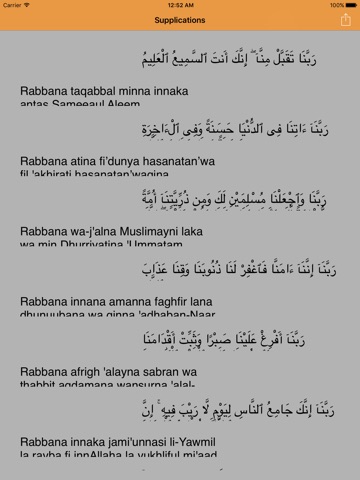 Carrier 12:52 AM 100%
Supplications
رَبَّنَا تَقَبَّلْ مِنَّا ۖ إِنَّكَ أَنتَ ٱلسَّمِيعُ ٱلْعَلِيمُ
Rabbana taqabbal minna innaka
antas Sameeaul Aleem
رَبَّنَا ءَاتِنَا فِى ٱلدُّنْيَا حَسَنَةً وَفِى ٱلْءَاخِرَةِ
Rabbana atina fi'dunya hasanatan'wa
fil 'akhirati hasanatan'waqina
رَبَّنَا وَٱجْعَلْنَا مُسْلِمَيْنِ لَكَ وَمِن ذُرِّيَّتِنَآ أُمَّةً
Rabbana wa-j'alna Muslimayni laka
wa min Dhurriyatina 'Ummatam
رَبَّنَآ إِنَّنَآ ءَامَنَّا فَٱغْفِرْ لَنَا ذُنُوبَنَا وَقِنَا عَذَابَ
Rabbana innana amanna faghfir lana
dhunuubana wa qinna 'adhaban-Naar
رَبَّنَآ أَفْرِغْ عَلَيْنَا صَبْرًا وَثَبِّتْ أَقْدَامَنَا
Rabbana afrigh 'alayna sabran wa
thabbit aqdamana wansurna 'alal-
رَبَّنَآ إِنَّكَ جَامِعُ ٱلنَّاسِ لِيَوْمٍ لَّا رَيْبَ فِيهِ ۚ إِنَّ
Rabbana innaka jami'unnasi li-Yawmil
la rayba fi innAllaha la yukhliful mi'aad